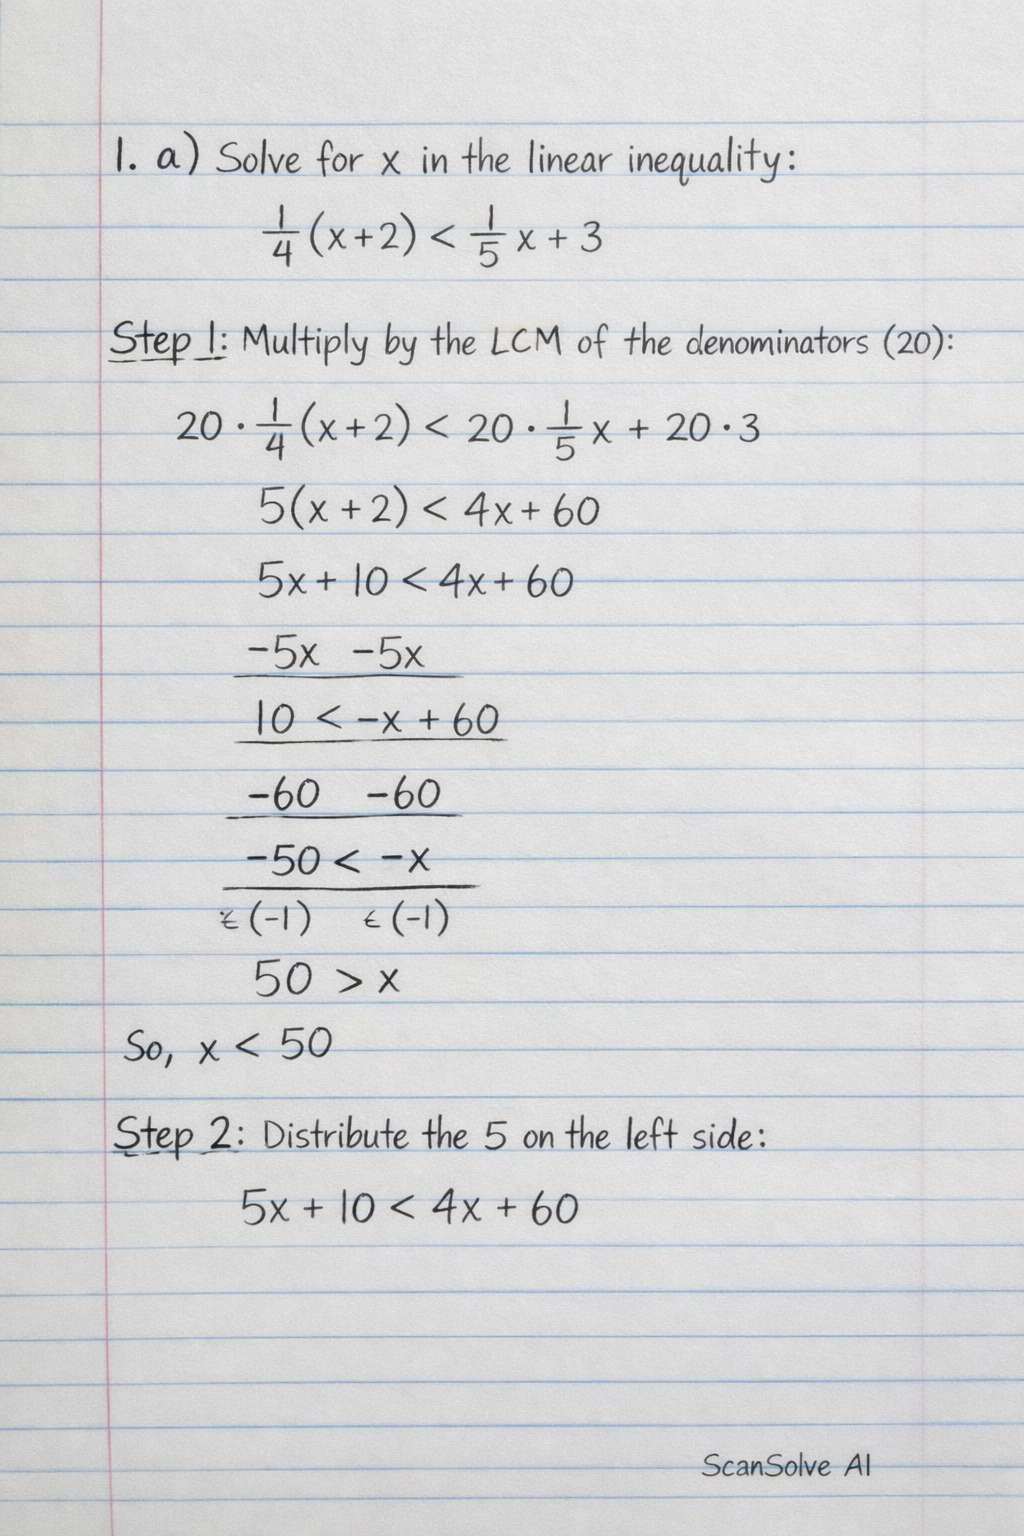 1. a) Solve for x in the linear inequality:
1/4 (x+2) < 1/5 x + 3
Step 1: Multiply by the LCM of the denominators (20):
20 · 1/4 (x+2) < 20 · 1/5 x + 20 · 3
5(x + 2) < 4x + 60
5x + 10 < 4x + 60
-5x -5x
10 < -x + 60
-60 -60
-50 < -x
(-1) (-1)
50 > x
So, x < 50
Step 2: Distribute the 5 on the left side:
5x + 10 < 4x + 60
ScanSolve AI